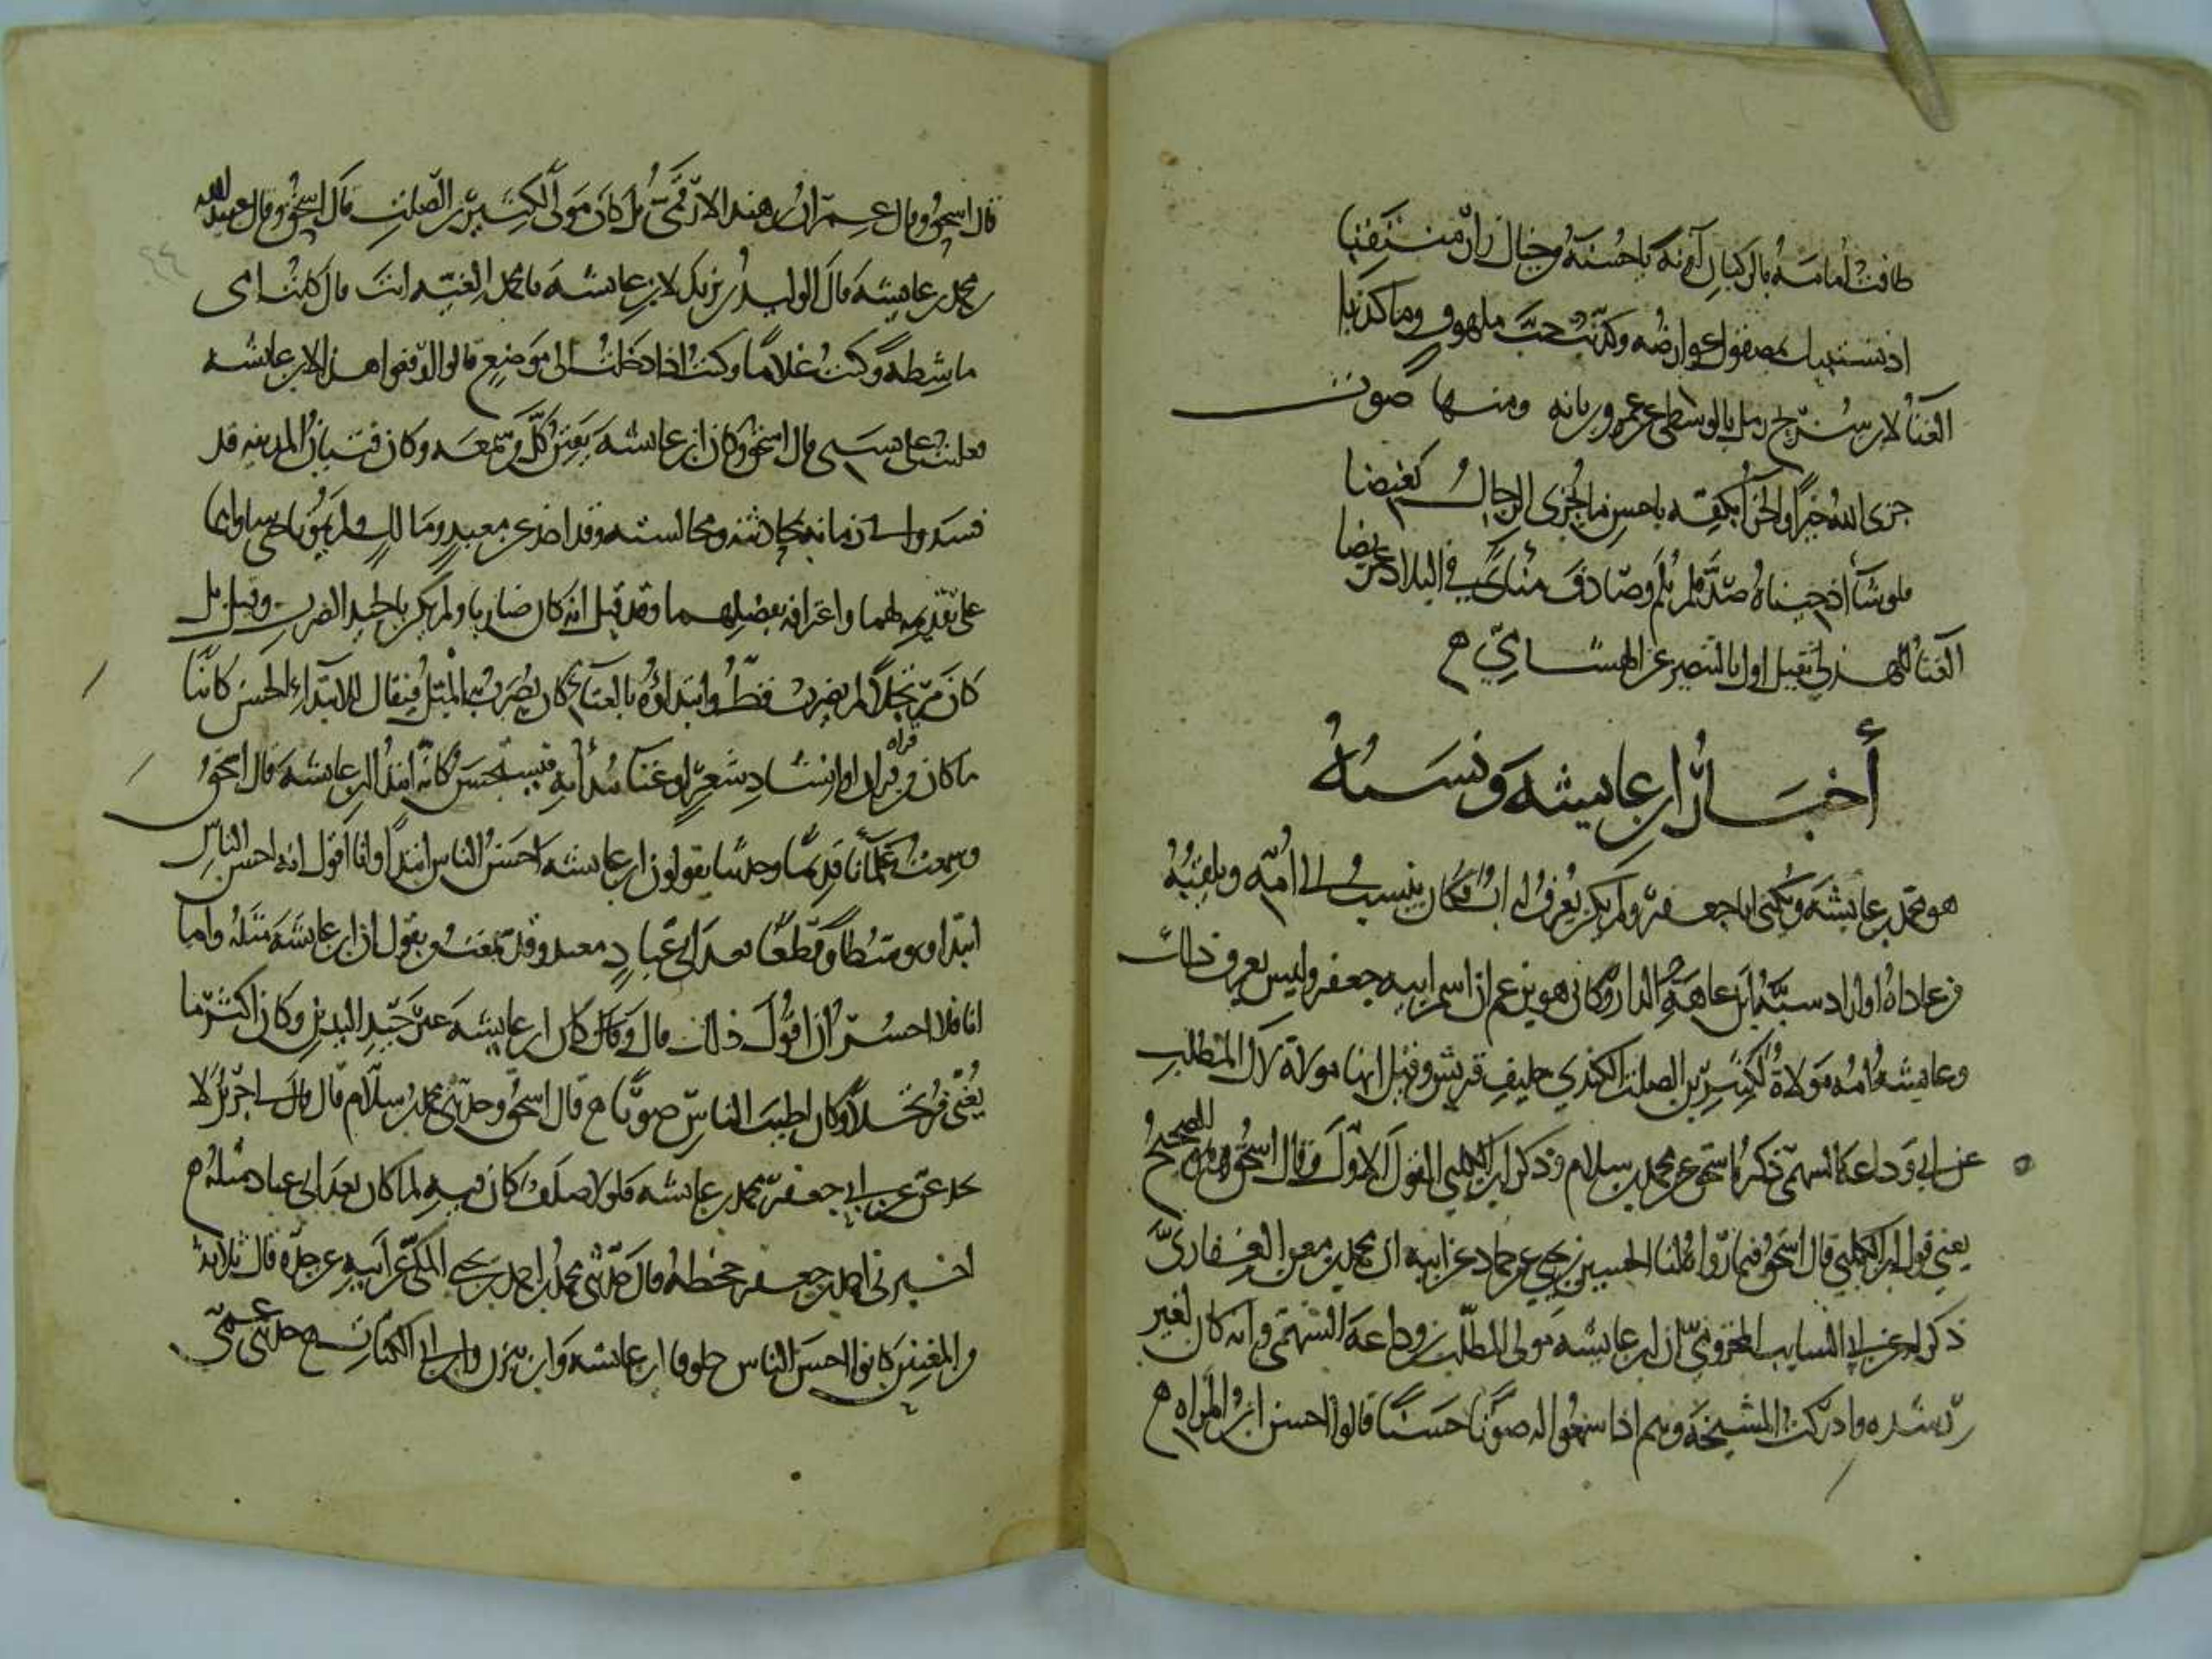 طافت أمامة بالركبان آونة يا حسنه وخيال زار منتقبا
اذ تستبيك بمصقول عوارضه وكذبت حب ملهوف وما كذبا
الغنا لابن سريج رمل بالوسطى عن عمرو وبانه ومنها صوت
جزى الله خيرا والجزا بكفه باحسن ما يجزى الرجال بغيضا
فلو شا اذ جيناه صد فلم يلم وصادف منأى في البلاد عريضا
الغنا للهذلي ثقيل اول بالبنصر عن الهشامي
أخبار ابن عايشة ونسبه
هو محمد بن عايشة ويكنى ابا جعفر ولم يكن يعرف له اب فكان ينسب الى امه ويلقبه
من عاداه او اراد سبه ابن عاهة الدار وكان هو يزعم ان اسم ابيه جعفر وليس يعرف ذلك
وعايشة امه مولاة لكثير بن الصلت الكندي حليف قريش وقيل انها مولاة لآل المطلب
بن ابي وداعة السهمي ذكر ذلك اسحق عن محمد بن سلام وذكر ابن الكلبي القول الاول وقال اسحق هو الصحيح
يعني قول ابن الكلبي قال اسحق فيما رواه لنا الحسين بن يحيى عن حماد عن ابيه ان محمد بن معن الغفاري
ذكر له عن ابي السايب المخزومي ان ابن عايشة مولى المطلب بن وداعة السهمي وانه كان لغير
رشده وادركت المشيخة وهم اذا سمعوا له صوتا حسنا قالوا احسن ابن المراه
قال اسحق وقال عمران بن هند الارقمي بل كان مولى لكثير بن الصلت قال اسحق وقال عبيد الله
بن محمد بن عايشة قال الوليد بن يزيد لابن عايشة يا محمد الغيه انت قال كانت امي
ماشطة وكنت غلاما وكنت اذا دخلت الى موضع قالوا ارفعوا هذا لابن عايشة
فغلبت على نسبي قال اسحق وكان ابن عايشة يفتن كل من سمعه وكان فتيان المدينه قد
فسدوا في زمانه بمحادثته ومجالسته وقد اخذ عن معبد ومالك ولم يموتا حتى ساواهما
على تقديمه لهما واعترافه بفضلهما وقد قيل انه كان ضاربا ولم يكن بالجيد الضرب وقيل بل
كان مرتجلا لم يضرب قط وابتداؤه بالغنا كان يضرب به المثل فيقال للابتداء الحسن كائنا
ما كان من قراه او انشاد شعر او غنا يبدأ به فيستحسن كانه ابتدا ابن عايشة قال اسحق
وسمعت علمأنا قديما وحديثا يقولون ابن عايشة احسن الناس ابتدا وانا اقول انه احسن الناس
ابتدا وتوسطا وقطعا بعد ابي عباد معبد وقد سمعت من يقول ان ابن عايشة مثله واما
انا فلا اجسر ان اقول ذلك قال وقال كان ابن عايشة غير جيد اليدين وكان اكثر ما
يغنى مرتجلا وكان اطيب الناس صوتا قال اسحق وحدثني محمد بن سلام قال قال لي جرير لا
تخدعن عن ابي جعفر محمد بن عايشة فلولا صلف كان فيه لما كان بعد ابي عباد مثله
اخبرني احمد بن جعفر جحظة قال حدثني محمد بن احمد بن يحيى المكي عن ابيه عن جده قال ثلاثة
من المغنين كانوا احسن الناس حلوقا ابن عايشة وابن تيزن وابن ابي الكنات حدثني عمي